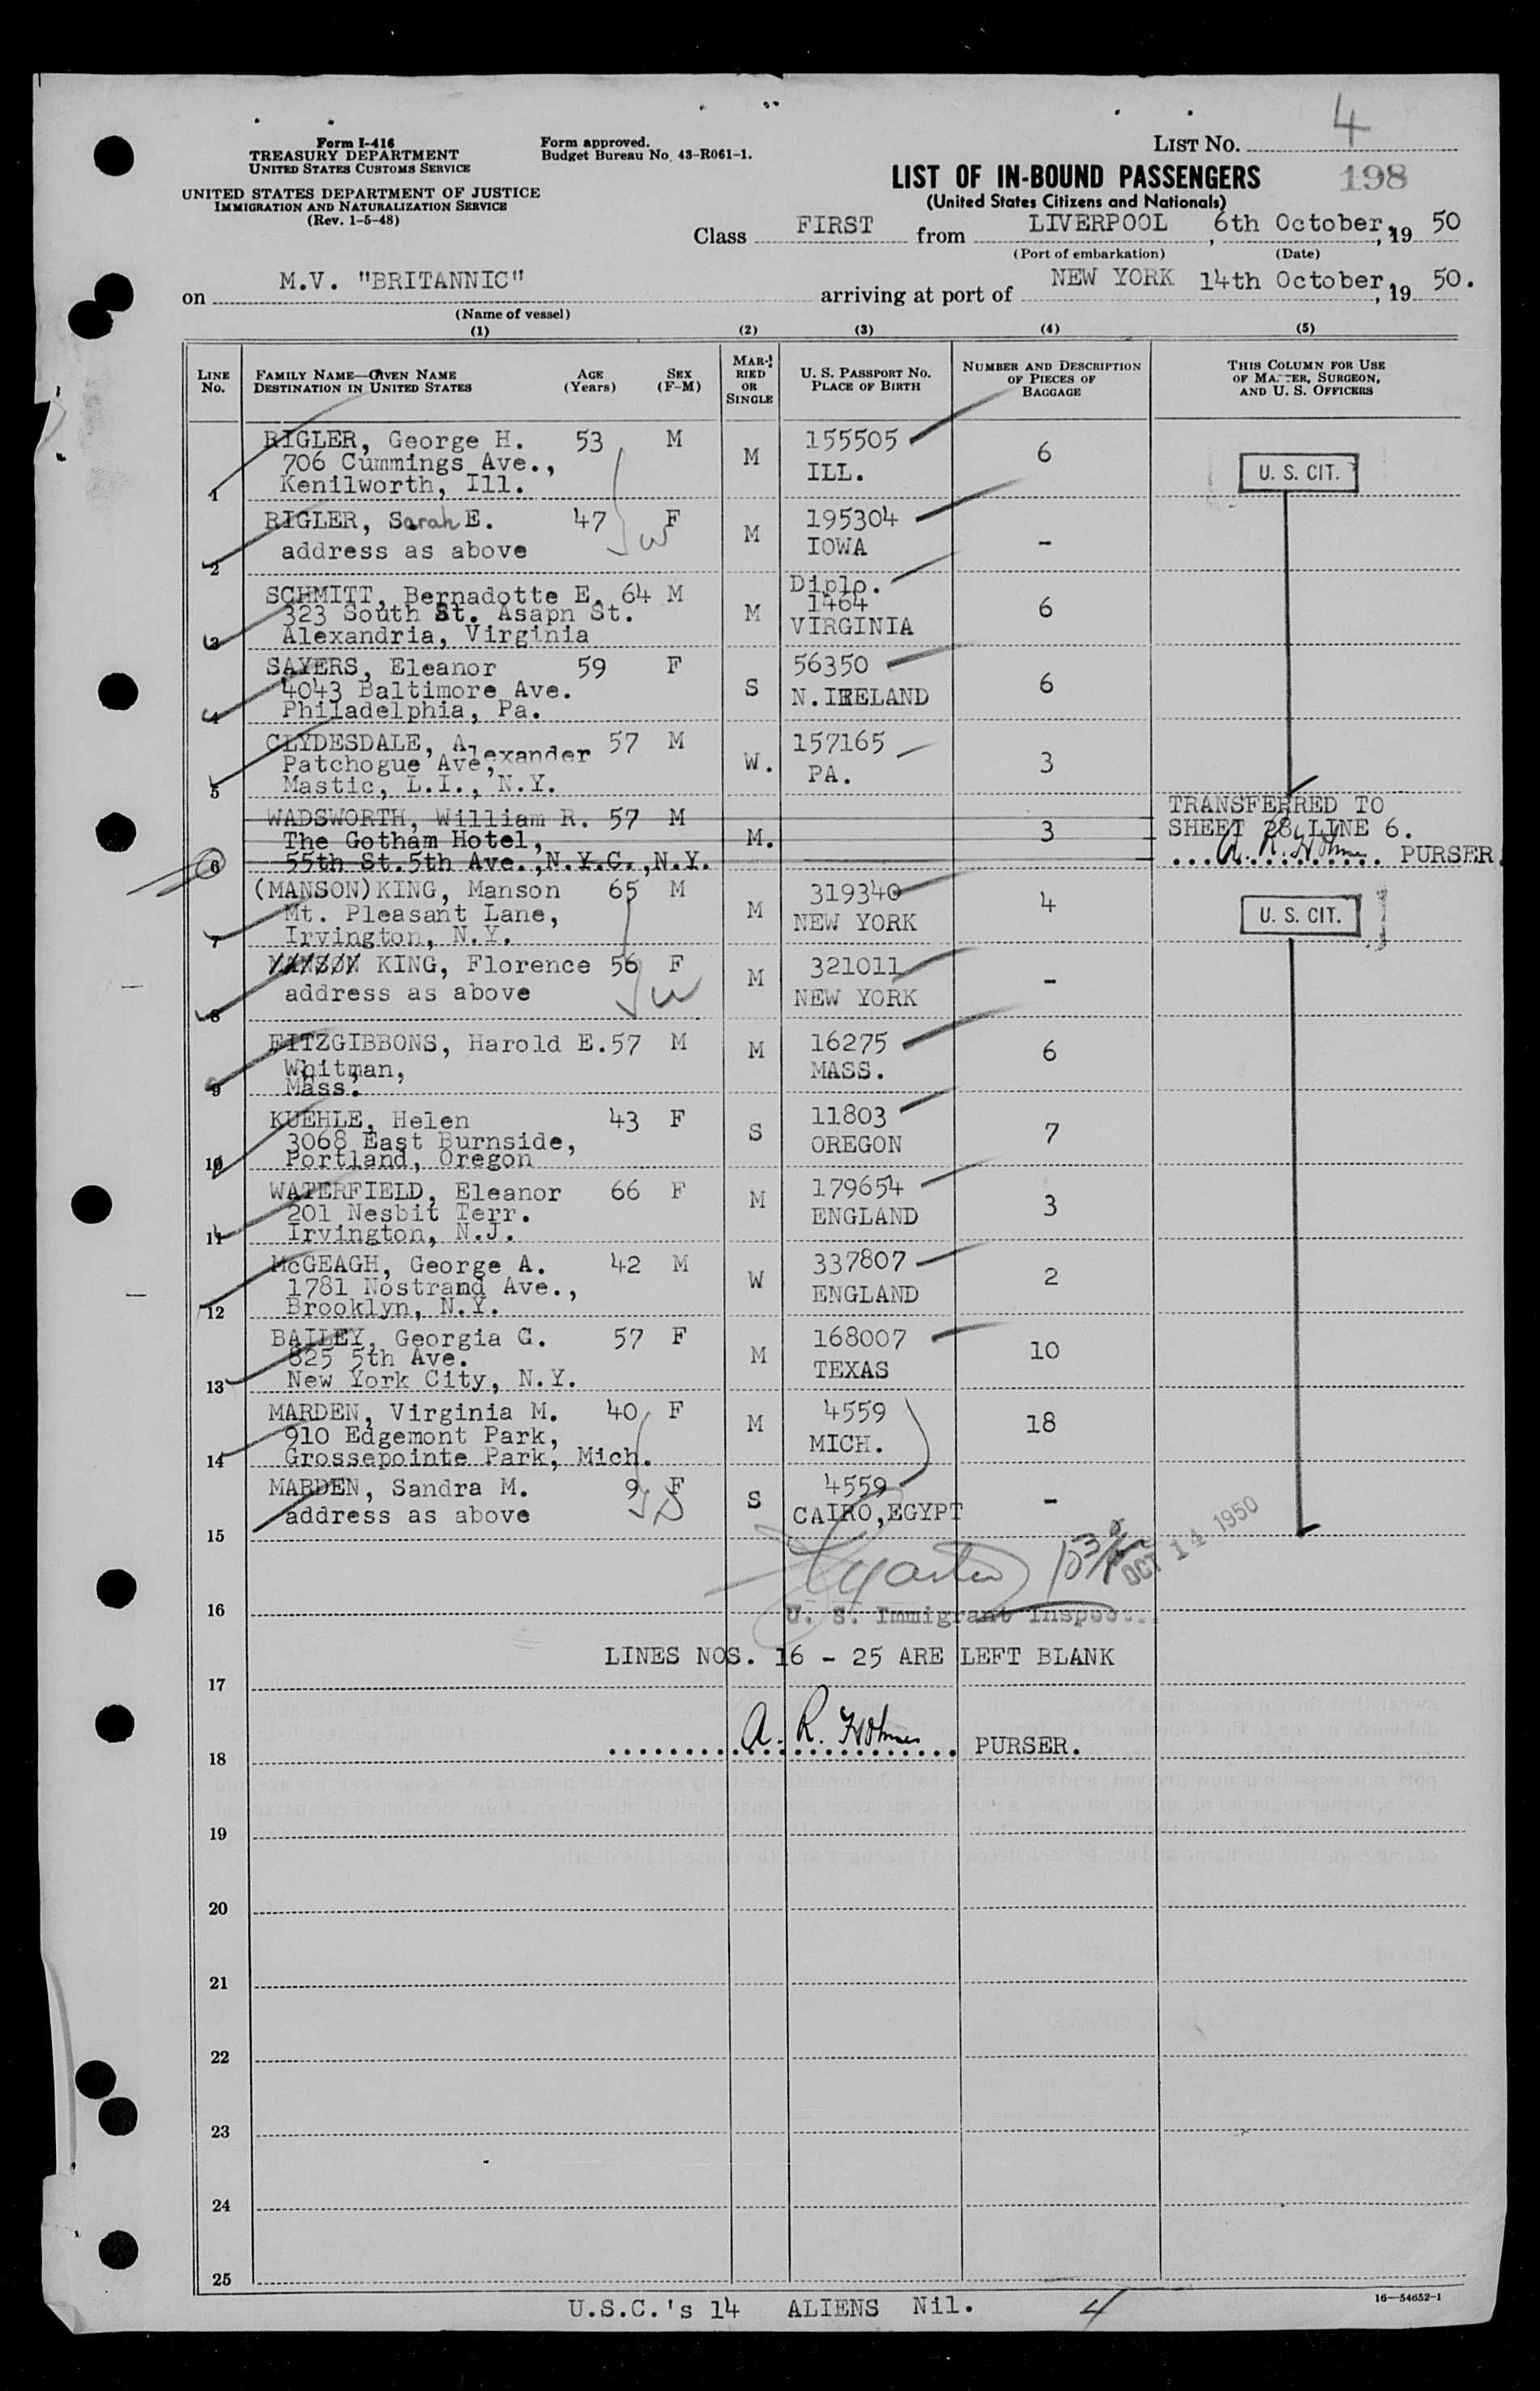 Form I-416
TREASURY DEPARTMENT
UNITED STATES CUSTOMS SERVICE
UNITED STATES DEPARTMENT OF JUSTICE
IMMIGRATION AND NATURALIZATION SERVICE
(Rev. 1-5-48)
Form approved.
Budget Bureau No. 43-R061-1.
LIST NO. 4
LIST OF IN-BOUND PASSENGERS 198
(United States Citizens and Nationals)
Class FIRST from LIVERPOOL, 6th October, 19 50
(Port of embarkation) (Date)
on M.V. "BRITANNIC" arriving at port of NEW YORK 14th October, 19 50.
(Name of vessel)
(1) (2) (3) (4) (5)
LINE NO.
FAMILY NAME—GIVEN NAME
DESTINATION IN UNITED STATES
AGE (Years)
SEX (F-M)
MARRIED OR SINGLE
U. S. PASSPORT NO.
PLACE OF BIRTH
NUMBER AND DESCRIPTION OF PIECES OF BAGGAGE
THIS COLUMN FOR USE OF MASTER, SURGEON, AND U. S. OFFICERS
1 RIGLER, George H. 53 M M 155505 6 U. S. CIT.
706 Cummings Ave., ILL.
Kenilworth, Ill.
2 RIGLER, Sarah E. 47 F M 195304 -
address as above IOWA
W
3 SCHMITT, Bernadotte E. 64 M M Diplo. 6
323 South St. Asapn St. 1464
Alexandria, Virginia VIRGINIA
4 SAYERS, Eleanor 59 F S 56350 6
4043 Baltimore Ave. N.IRELAND
Philadelphia, Pa.
5 CLYDESDALE, Alexander 57 M W. 157165 3
Patchogue Ave, PA.
Mastic, L.I., N.Y.
6 WADSWORTH, William R. 57 M M. 3 TRANSFERRED TO
The Gotham Hotel, SHEET 28, LINE 6.
55th St.5th Ave.,N.Y.C.,N.Y. A. R. Holmes PURSER
7 (MANSON)KING, Manson 65 M M 319340 4 U. S. CIT.
Mt. Pleasant Lane, NEW YORK
Irvington, N.Y.
8 MANSON KING, Florence 56 F M 321011 -
address as above NEW YORK
W
9 FITZGIBBONS, Harold E. 57 M M 16275 6
Whitman, MASS.
Mass.
10 KUEHLE, Helen 43 F S 11803 7
3068 East Burnside, OREGON
Portland, Oregon
11 WATERFIELD, Eleanor 66 F M 179654 3
201 Nesbit Terr. ENGLAND
Irvington, N.J.
12 McGEAGH, George A. 42 M W 337807 2
1781 Nostrand Ave., ENGLAND
Brooklyn, N.Y.
13 BAILEY, Georgia C. 57 F M 168007 10
825 5th Ave. TEXAS
New York City, N.Y.
14 MARDEN, Virginia M. 40 F M 4559 18
910 Edgemont Park, MICH.
Grossepointe Park, Mich.
15 MARDEN, Sandra M. 9 F S 4559 -
address as above CAIRO,EGYPT
OCT 14 1950
16
U. S. Immigrant Inspect
LINES NOS. 16 - 25 ARE LEFT BLANK
17
18 A. R. Holmes PURSER.
19
20
21
22
23
24
25
U.S.C.'s 14 ALIENS Nil. 4
16—54652-1